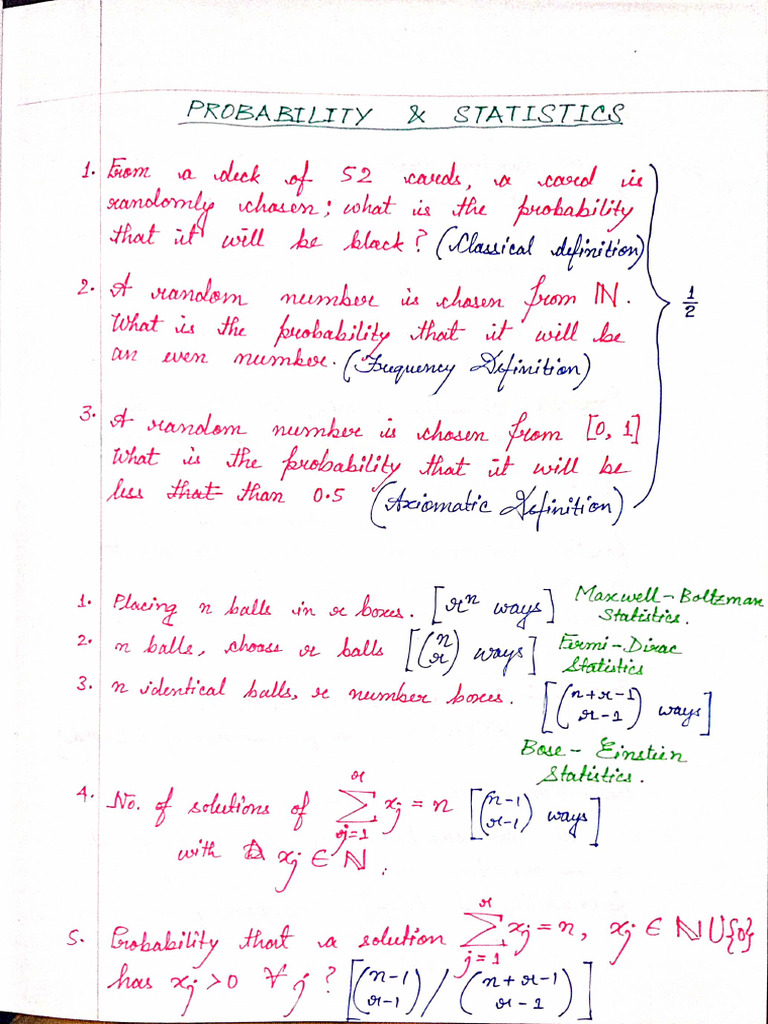 PROBABILITY & STATISTICS
1. From a deck of 52 cards, a card is
randomly chosen; what is the probability
that it will be black? (Classical definition)
2. A random number is chosen from ℕ.
What is the probability that it will be
an even number. (Frequency Definition)
1/2
3. A random number is chosen from [0, 1]
What is the probability that it will be
less that than 0.5 (Axiomatic Definition)
1. Placing n balls in r boxes. [rⁿ ways] Maxwell-Boltzman
Statistics.
2. n balls, choose r balls [(n r) ways] Fermi-Dirac
Statistics
3. n identical balls, r number boxes. [(n+r-1 r-1) ways]
Bose-Einstien
Statistics.
4. No. of solutions of ∑_{j=1}^{r} x_j = n [(n-1 r-1) ways]
with x_j ∈ ℕ.
5. Probability that a solution ∑_{j=1}^{r} x_j = n, x_j ∈ ℕ ∪ {0}
has x_j > 0 ∀ j? [(n-1 r-1) / (n+r-1 r-1)]